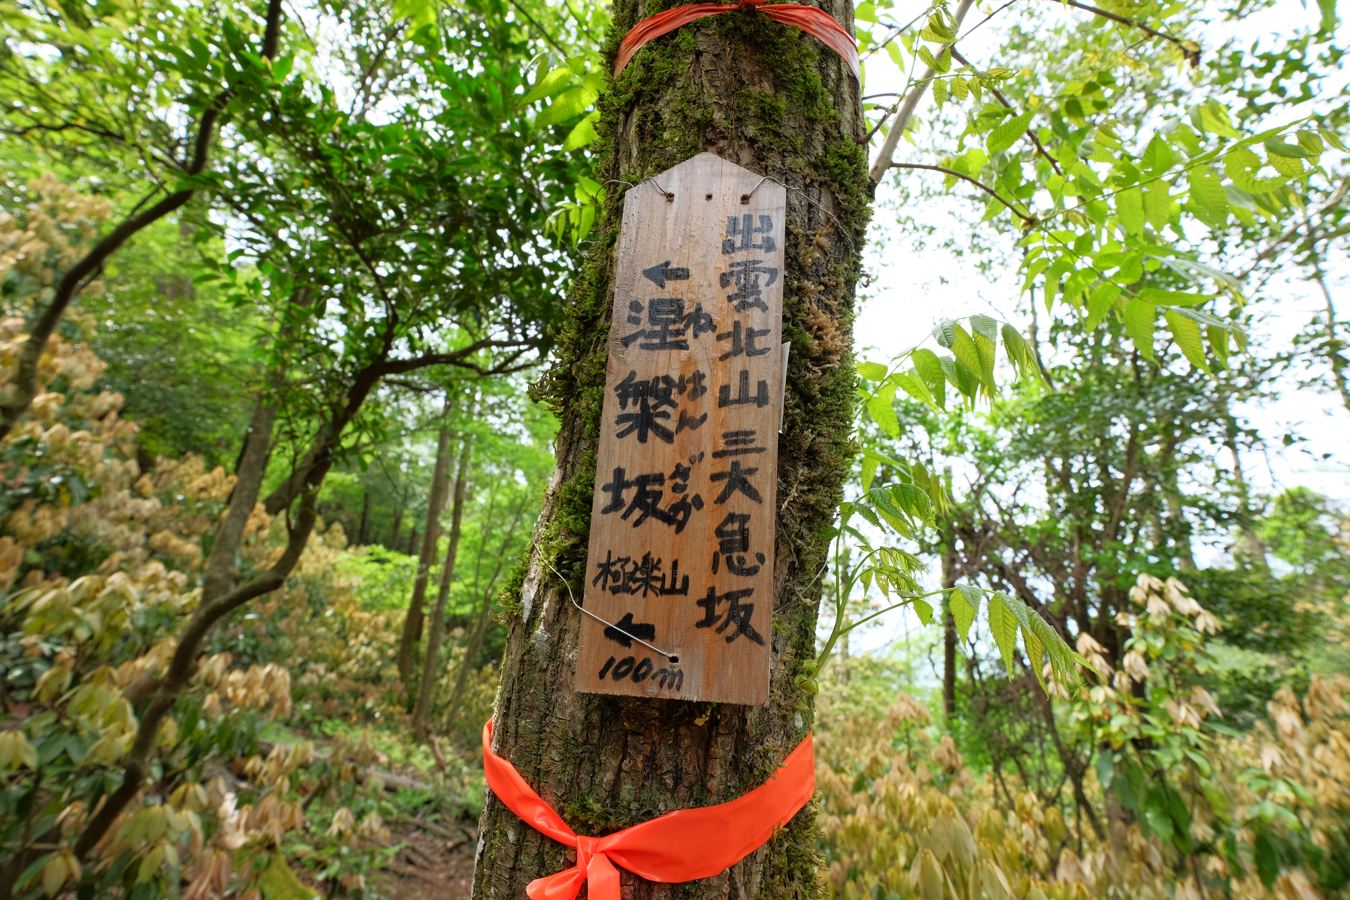 出雲北山三大急坂
←涅槃坂
ねはんざか
極楽山
←
100m